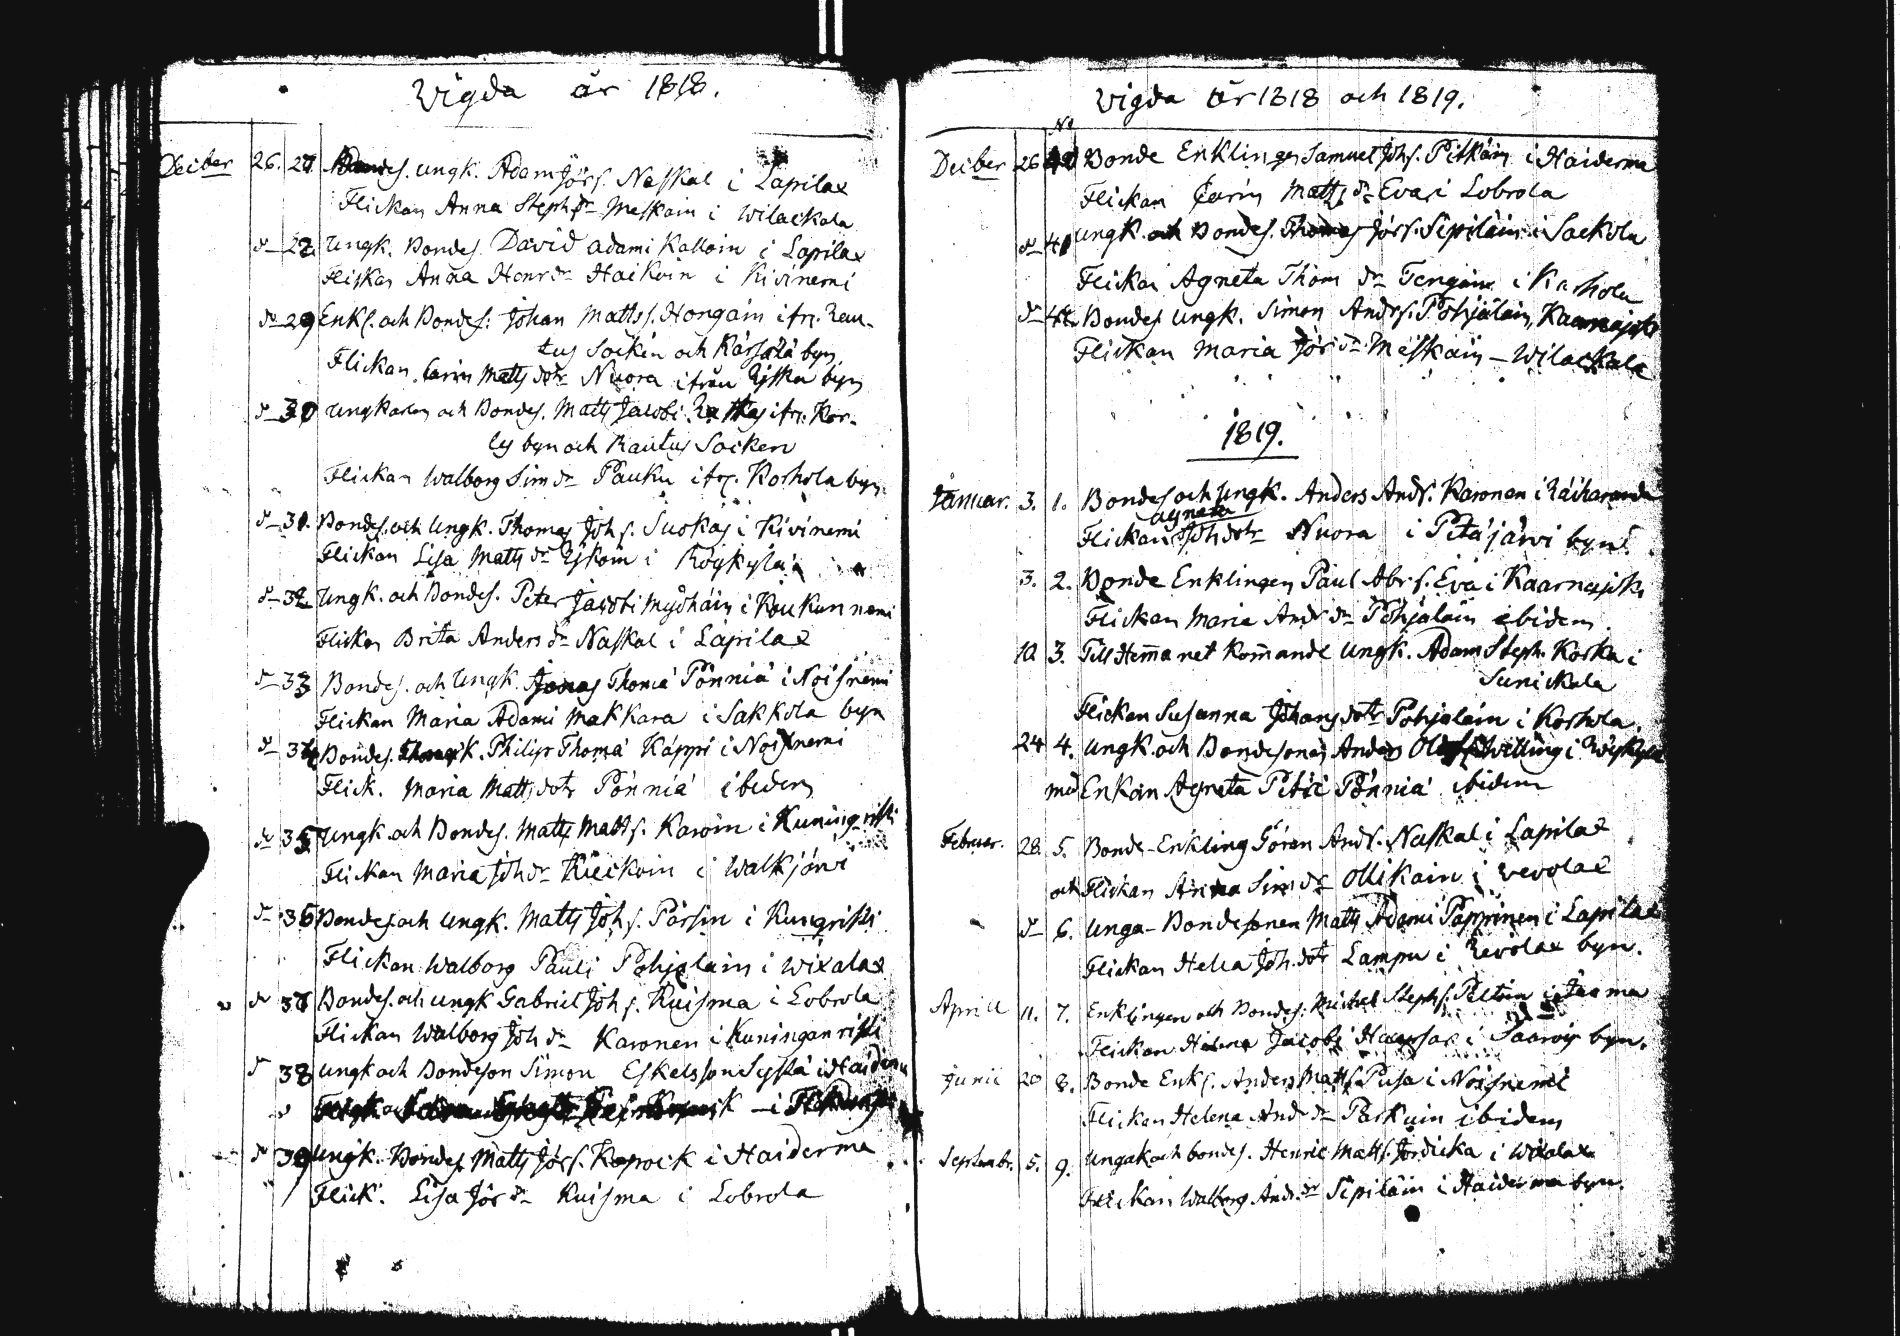 Vigda år 1818.
Deciber 26. 27 Bondes. ungk. Adam Jörs. Naskal i Lapilax
Flickan Anna Steph dr Meskain i Wilackala
d- 28. Ungk. Bondes. David Adami Kalloin i Lapilax
Flickan Anna Henr dr Haikoin i Kivinemi
d- 29 Enkl. och Bondes: Johan Matts s. Hongain ifr. Rau-
tus Sockin och Kärsälä byn.
Flickan Carin Matts dotr Nuora ifrån Riska byn
d- 30 Ungkarlen och Bondes. Matts Jacobi ifr. Kor-
ly byn och Rautus Socken
Flickan Walborg Sim dr Pauku ifr. Korhola byn.
d- 31. Bondes. och Ungk. Thomas Joh s. Suokas i Kivinemi
Flickan Lisa Matts dr Riskoin i Röykylä
d- 32. Ungk. och Bondes. Peter Jacobi Mydhäin i Koukunnemi
Flickan Brita Anders dr Naskal i Lapilax
d- 33 Bondes. och Ungk. Jonas Thomä Pönniä i Noisnemi
Flickan Maria Adami Makkara i Sakkola byn
d- 34 Bondes. k. Philip Thomä Käppi i Noisnemi
Flick. Maria Matts dotr Pönniä ibidem
d- 35 Ungk. och Bondes. Matts Matts s. Karoin i Kuningristi
Flickan Maria Joh dr Kiiskoin i Walkjärvi
d- 36 Bondes. och Ungk. Matts Joh s. Pärsin i Kungristi
Flickan Walborg Pauli Pohjalain i Wixalax
d- 37 Bondes. och ungk Gabriel Joh s. Kuisma i Lobrola
Flickan Walborg Joh dr Karonen i Kuninganristi
d 38 Ungk och Bondeson Simon Eskelsson Systä i Haiderma
d 39 Ungk. Bondes. Matts Jörs. Kopock i Haiderma
Flick. Lisa Jör dr Kuisma i Lobrola
Vigda år 1818 och 1819.
No
Deciber 26 Bonde Enklingen Samuel Johs. Pitkäin i Haiderma
Flickan Carin Matts dr Eva i Lobrola
d- 41 Ungk. och Bondes. Thomas Jörs. Sipiläin i Sackola
Flickan Agneta Thom dr Tengain i Karhola
d- Bondes. Ungk. Simon Andrs. Pohjalain, Kaarnajoki
Flickan Maria Jör dr Meskäin - Wilackala
1819.
Januar. 3. 1. Bondes. och Ungk. Anders Ands. Karonen i Räiharanda
Agneta
Flickan Joh dotr Nuora i Petäjärvi byn.
3. 2. Bonde Enklingen Paul Abr s. Eva i Kaarnajoki
Flickan Maria And dr Pohjalain ibidem.
10. 3. Till Hemmanet kommande Ungk. Adam Steph. Korka i
Sunickala
Flickan Susanna Johans dotr Pohjalain i Korhola
24 4. Ungk. och Bondesonen Anders i
med Enkan Agneta Petri Pönniä ibidem
Februar. 28. 5. Bonde-Enkling Göran Ands. Naskal i Lapilax
och Flickan Anna Sim dr Ollikain i Revolax
d- 6. Unga-Bondesonen Matts Adami Pappinen i Lapilax
Flickan Hella Joh. dotr Lampu i Revolax byn.
Aprill 11. 7. Enklingen och Bondes. Michel Stephs. Peltoin i Jaama
Flickan Helena Jacobi Haapsar i Saarois byn.
Junii 20 8. Bonde Enkl. Anders Matts s. Pusa i Noisnemi
Flickan Helena And dr Parkuin ibidem
Septembr. 5. 9. Ungak och bondes. Henric Matts. Jordicka i Wixalax
Flickan Walborg And. dr Sipiläin i Haiderma byn.